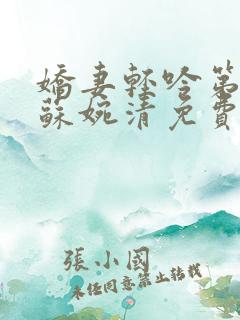 嬌妻輕吟第
蘇婉清免費
張小國
未經同意禁止轉載